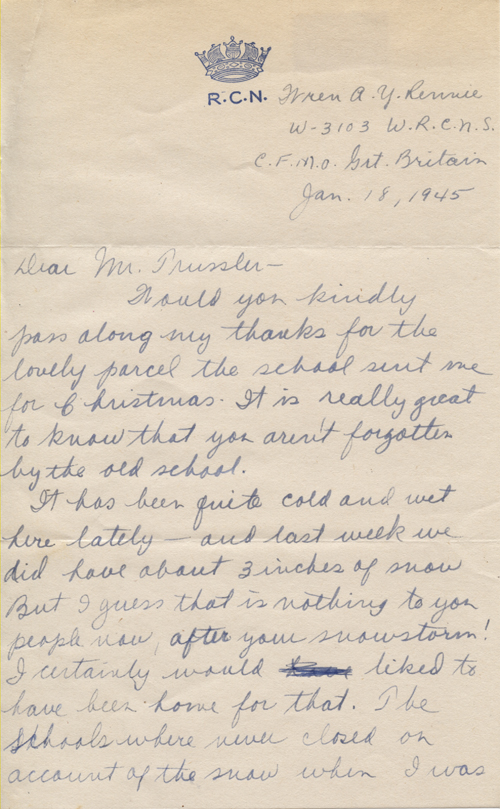 R.C.N. Wren A. Y. Rennie
W-3103 W.R.C.N.S.
C.F.M.O. Grt. Britain
Jan. 18, 1945
Dear Mr. Trussler-
Would you kindly
pass along my thanks for the
lovely parcel the school sent me
for Christmas. It is really great
to know that you aren't forgotten
by the old school.
It has been quite cold and wet
here lately - and last week we
did have about 3 inches of snow
But I guess that is nothing to you
people now, after your snowstorm!
I certainly would liked to
have been home for that. The
schools where never closed on
account of the snow when I was